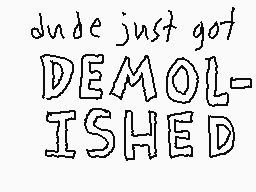 dude just got
DEMOL-
ISHED